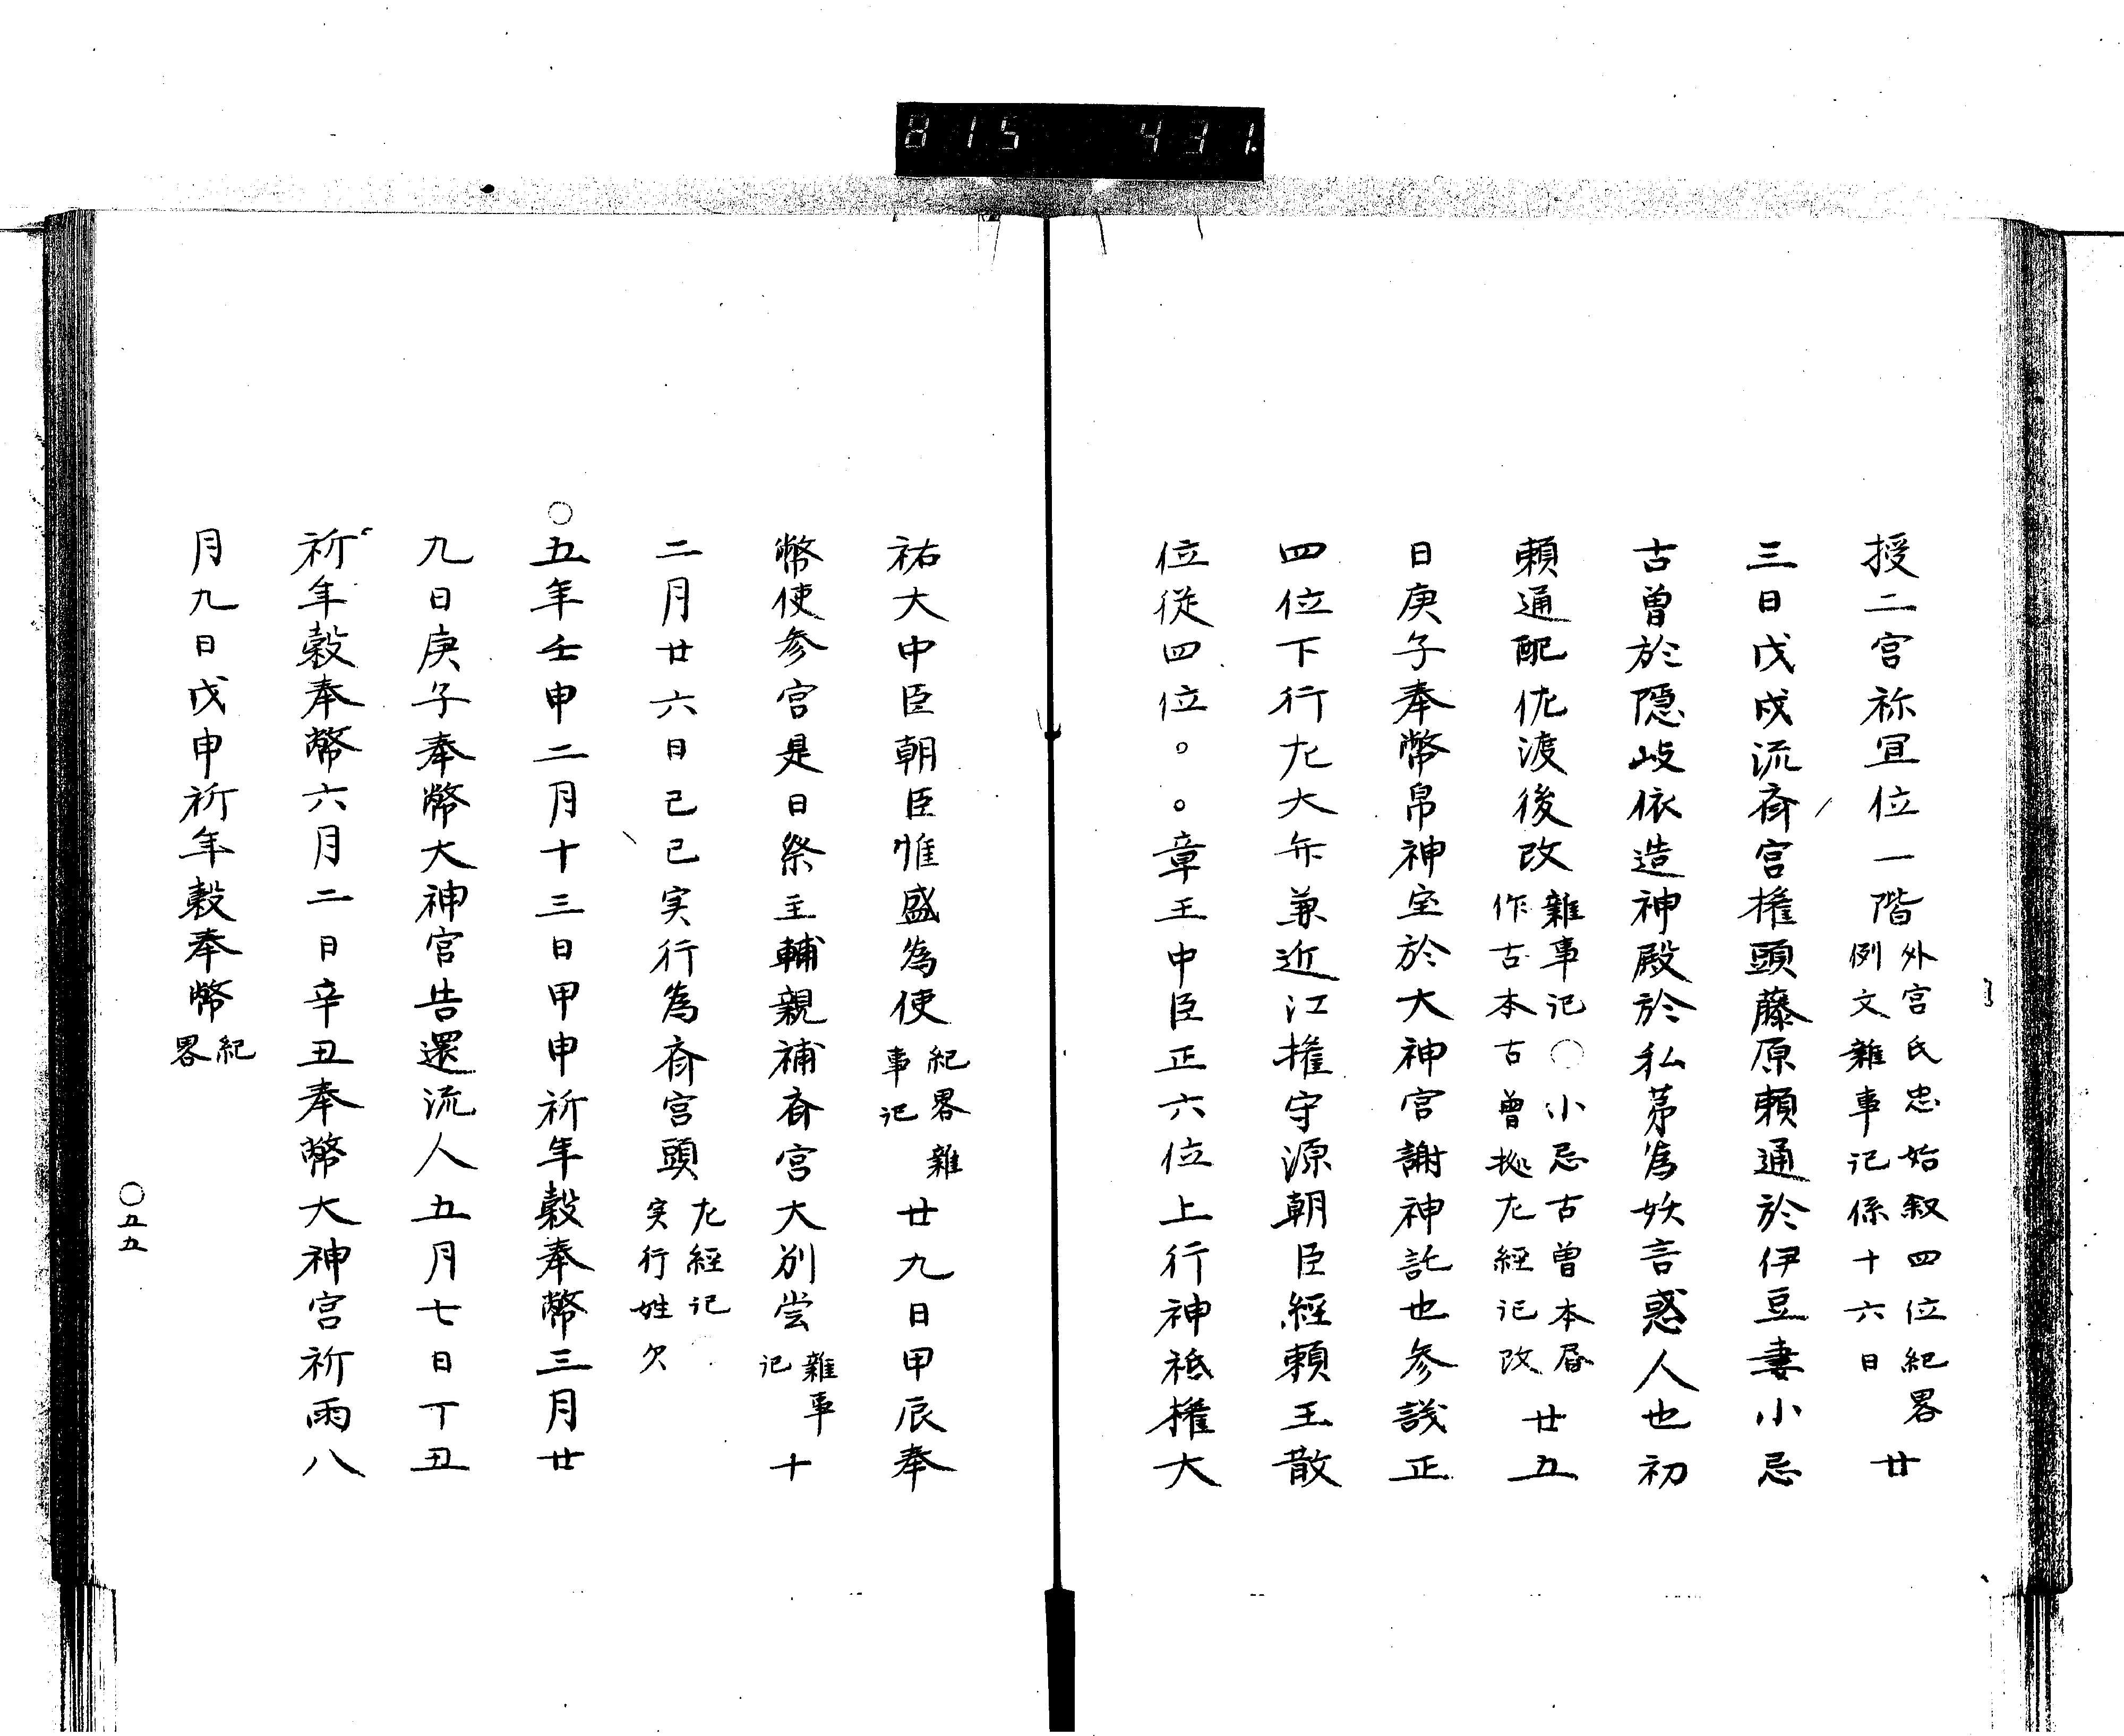 815 431.
授二宮祢宜位一階外宮氏忠始叙四位紀畧例文雜事記係十六日廿
三日戊戌流斎宮権頭藤原頼通於伊豆妻小忌
古曽於隠岐依造神殿於私茅為妖言惑人也初
頼通配佐渡後改雜事記〇小忌古曽本㞐作古本古曽拠左経記改廿五
日庚子奉幣帛神宝於大神宮謝神託也参議正
四位下行左大弁兼近江権守源朝臣経頼王散
位従四位。。章王中臣正六位上行神祗権大
祐大中臣朝臣惟盛為使紀畧雜事記廿九日甲辰奉
幣使参宮是日祭主輔親補斎宮大別당雜事記十
二月廿六日己巳実行為斎宮頭左経記実行姓欠
〇五年壬申二月十三日甲申祈年穀奉幣三月廿
九日庚子奉幣大神宮告還流人五月七日丁丑
祈年穀奉幣六月二日辛丑奉幣大神宮祈雨八
月九日戊申祈年穀奉幣紀畧
〇五五